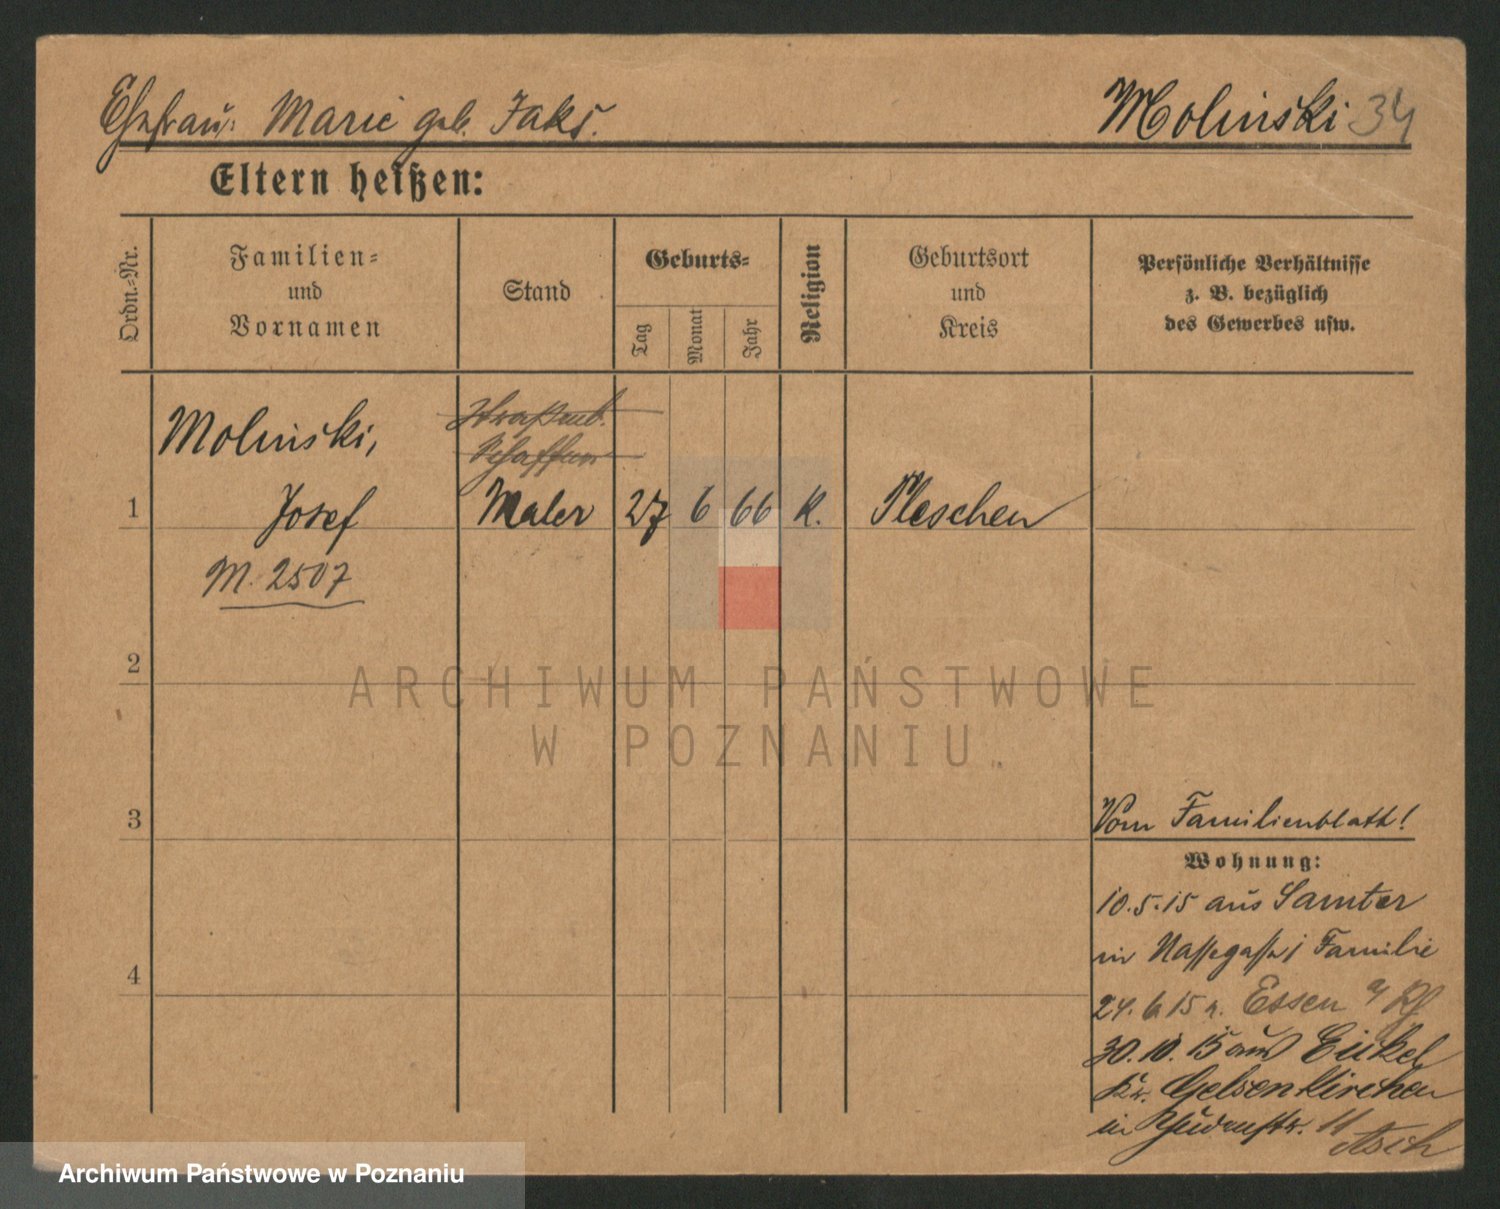 Ehefrau: Marie geb. Jaks.
Molinski 34
Eltern heißen:
Ordn.-Nr.
Familien-
und
Vornamen
Stand
Geburts-
Tag
Monat
Jahr
Religion
Geburtsort
und
Kreis
Persönliche Verhältnisse
z. B. bezüglich
des Gewerbes usw.
Molinski,
Straßenb.
Schaffner
1 Josef Maler 27 6 66 k. Pleschen
M. 2507
2
ARCHIWUM PAŃSTWOWE
W POZNANIU
3
Vom Familienblatt!
Wohnung:
10.5.15 aus Samter
in Nassegasse 1 Familie
4
24. 6 15 n. Essen a/
30. 10. 15 aus Eickel
Kr. Gelsenkirchen
in 11
Archiwum Państwowe w Poznaniu